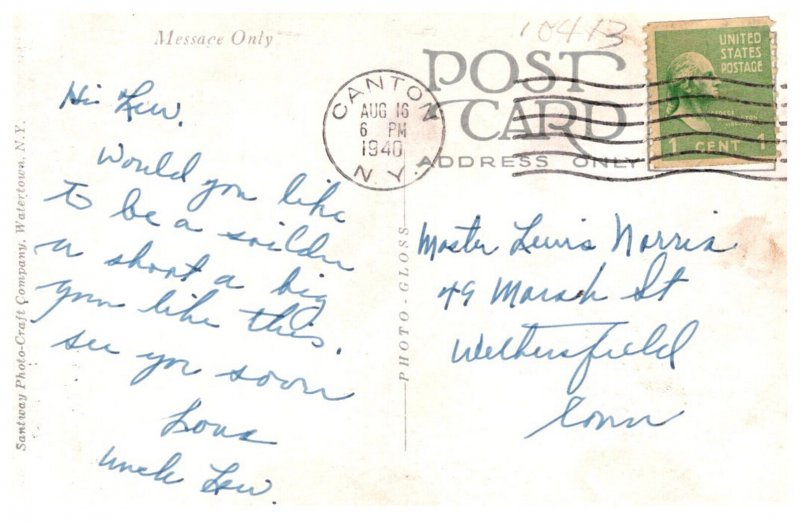 Message Only
10413
POST
CARD
ADDRESS ONLY
CANTON
AUG 16
6 PM
1940
N.Y.
UNITED
STATES
POSTAGE
1 CENT 1
Hi Lew.
Would you like
to be a soilder
a shoot a big
gun like this.
see you soon
Love
Uncle Lew.
Master Lewis Norris
49 Marsh St
Wethersfield
Conn
PHOTO-GLOSS
Santway Photo-Craft Company, Watertown, N.Y.